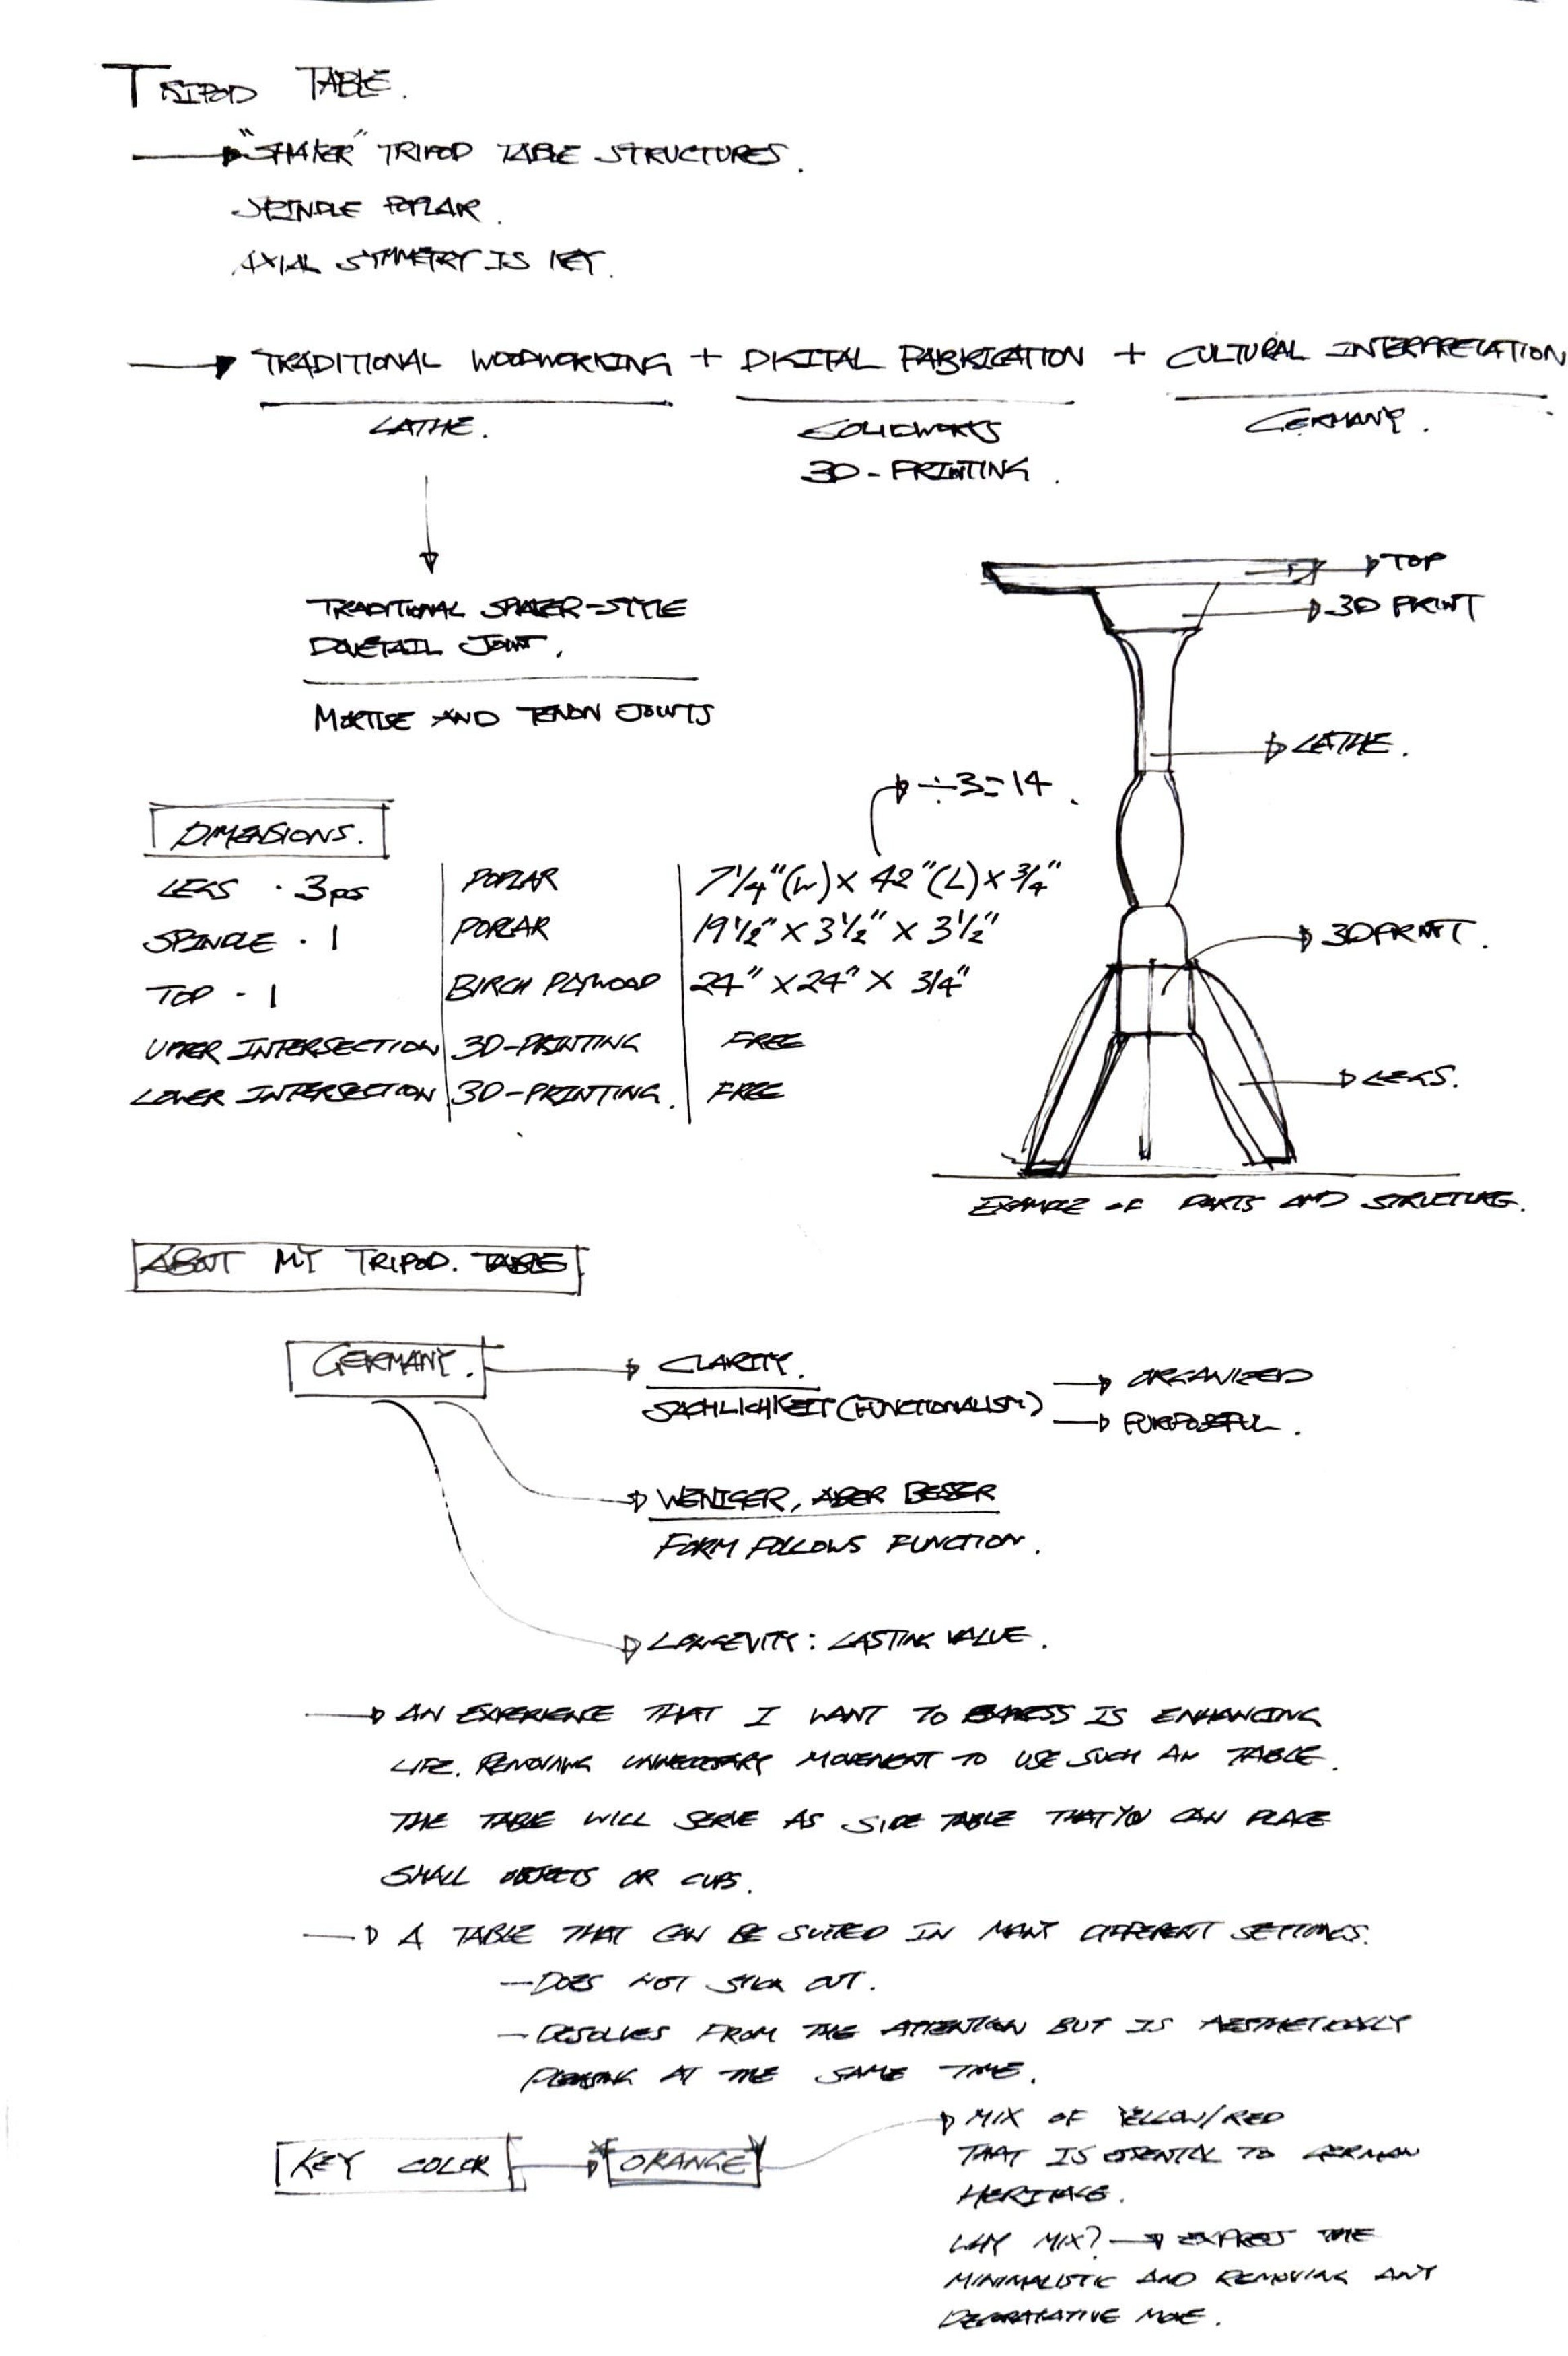 TRIPOD TABLE.
"SHAKER" TRIPOD TABLE STRUCTURES.
SPINDLE POPLAR.
AXIAL SYMMETRY IS KEY.
TRADITIONAL WOODWORKING + DIGITAL FABRICATION + CULTURAL INTERPRETATION
LATHE.
SOLIDWORKS
3D-PRINTING.
GERMANY.
TRADITIONAL SHAKER-STYLE
DOVETAIL JOINT.
MORTISE AND TENON JOINTS
TOP
3D PRINT
LATHE.
3D PRINT.
LEGS.
EXAMPLE OF PARTS AND STRUCTURE.
÷3=14.
DIMENSIONS.
LEGS · 3pcs POPLAR 7 1/4"(W) X 42"(L) X 3/4"
SPINDLE · 1 POPLAR 19 1/2" X 3 1/2" X 3 1/2"
TOP - 1 BIRCH PLYWOOD 24" X 24" X 3/4"
UPPER INTERSECTION 3D-PRINTING FREE
LOWER INTERSECTION 3D-PRINTING. FREE
ABOUT MY TRIPOD. TABLE
GERMANY.
CLARITY.
SACHLICHKEIT (FUNCTIONALISM)
ORGANIZED
PURPOSEFUL.
WENIGER, ABER BESSER
FORM FOLLOWS FUNCTION.
LONGEVITY: LASTING VALUE.
AN EXPERIENCE THAT I WANT TO EXPRESS IS ENHANCING
LIFE. REMOVING UNNECESSARY MOVEMENT TO USE SUCH AN TABLE.
THE TABLE WILL SERVE AS SIDE TABLE THAT YOU CAN PLACE
SMALL OBJECTS OR CUPS.
A TABLE THAT CAN BE SUITED IN MANY DIFFERENT SETTINGS.
- DOES NOT STICK OUT.
- DISOLVES FROM THE ATTENTION BUT IS AESTHETICALLY
PLEASING AT THE SAME TIME.
KEY COLOR
ORANGE
MIX OF YELLOW/RED
THAT IS TO GERMAN
HERITAGE.
WHY MIX? EXPRESS THE
MINIMALISTIC AND REMOVING ANY
DECORATIVE MOVE.